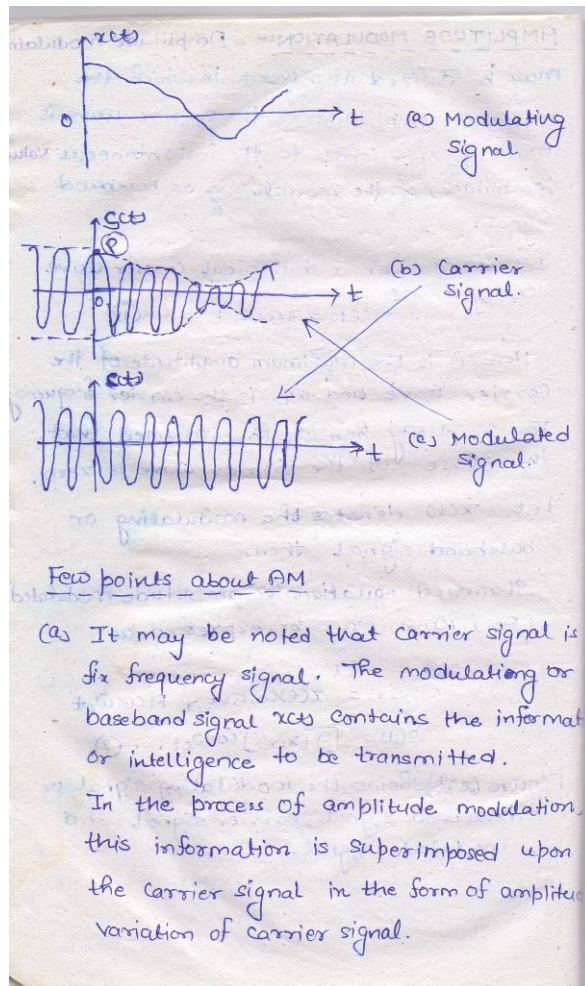 x(t)
0
t
(a) Modulating
Signal
S(t)
P
0
t
(b) Carrier
Signal.
C(t)
t
(c) Modulated
Signal.
Few points about AM
(a) It may be noted that carrier signal is
fix frequency signal. The modulationg or
baseband signal x(t) contains the informat
or intelligence to be transmitted.
In the process of amplitude modulation
this information is superimposed upon
the carrier signal in the form of amplitu
variation of carrier signal.